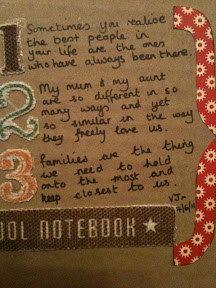 1
Sometimes you realise
the best people in
your life are the ones
who have always been there.
2
My mum & my aunt
are so different in so
many ways and yet
so similar in the way
they freely love us.
3
families are the thing
we need to hold
onto the most and
keep closest to us.
OOL NOTEBOOK